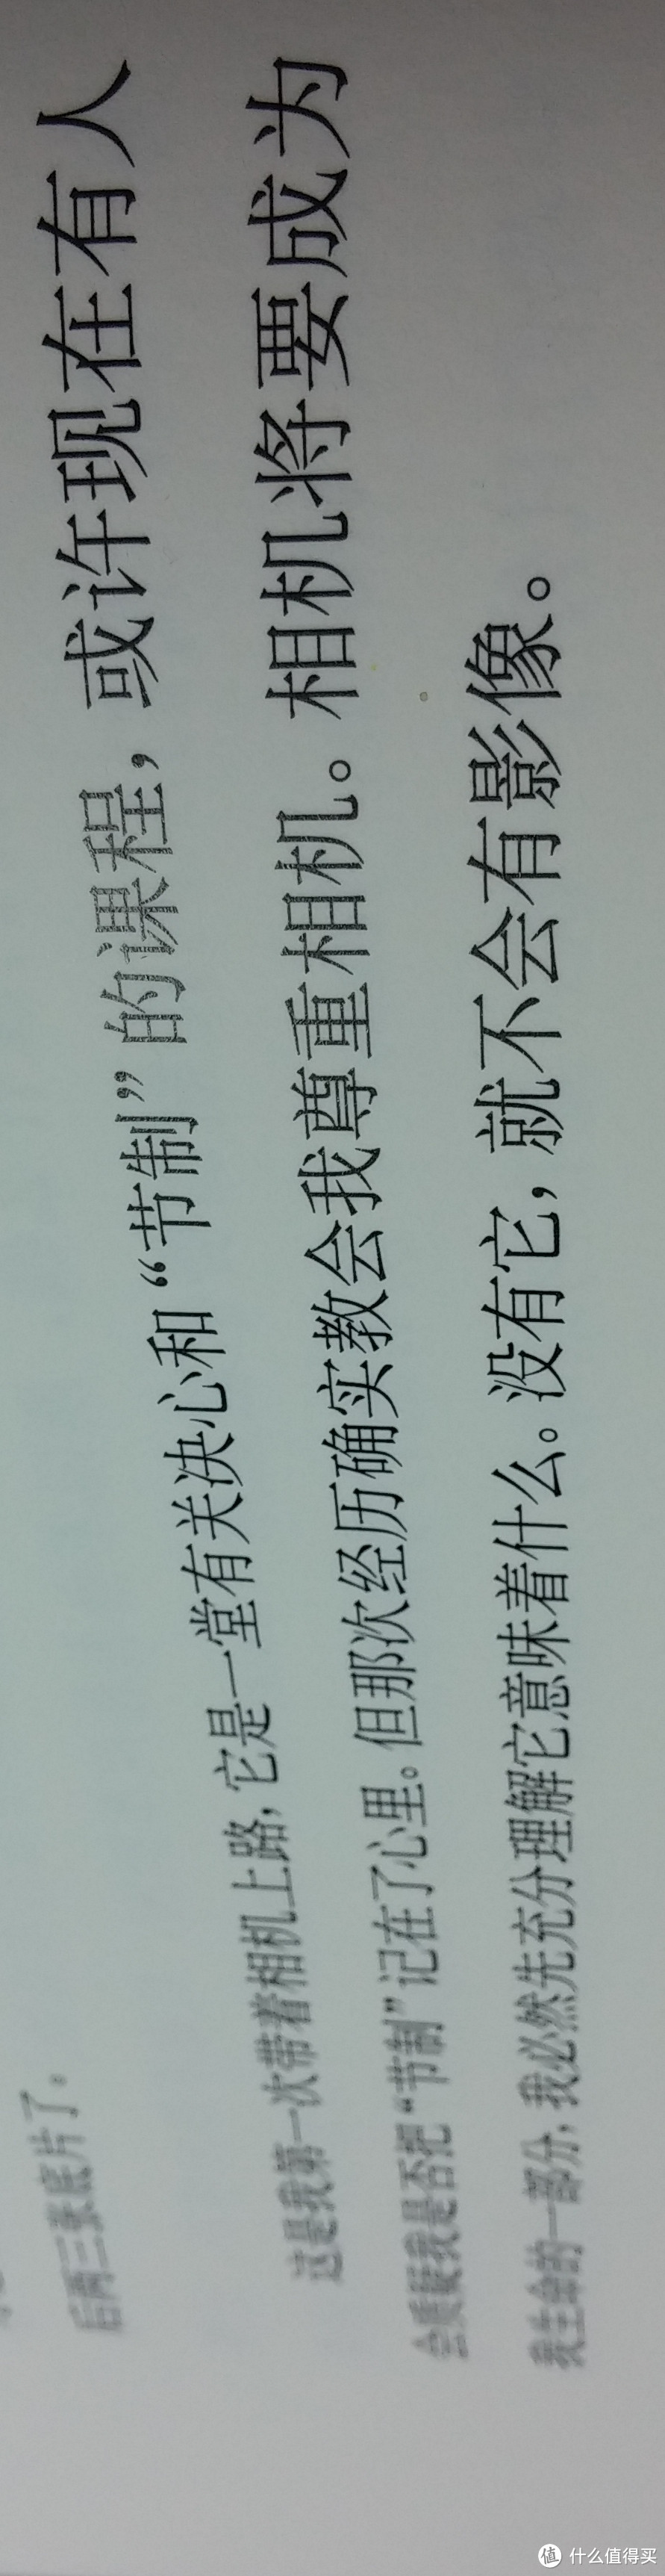 后两三张底片了。
这是我第一次带着相机上路，它是一堂有关决心和“节制”的课程，或许现在有人
会质疑我是否把“节制”记在了心里。但那次经历确实教会我尊重相机。相机将要成为
我生命的一部分，我必然先充分理解它意味着什么。没有它，就不会有影像。
值 什么值得买